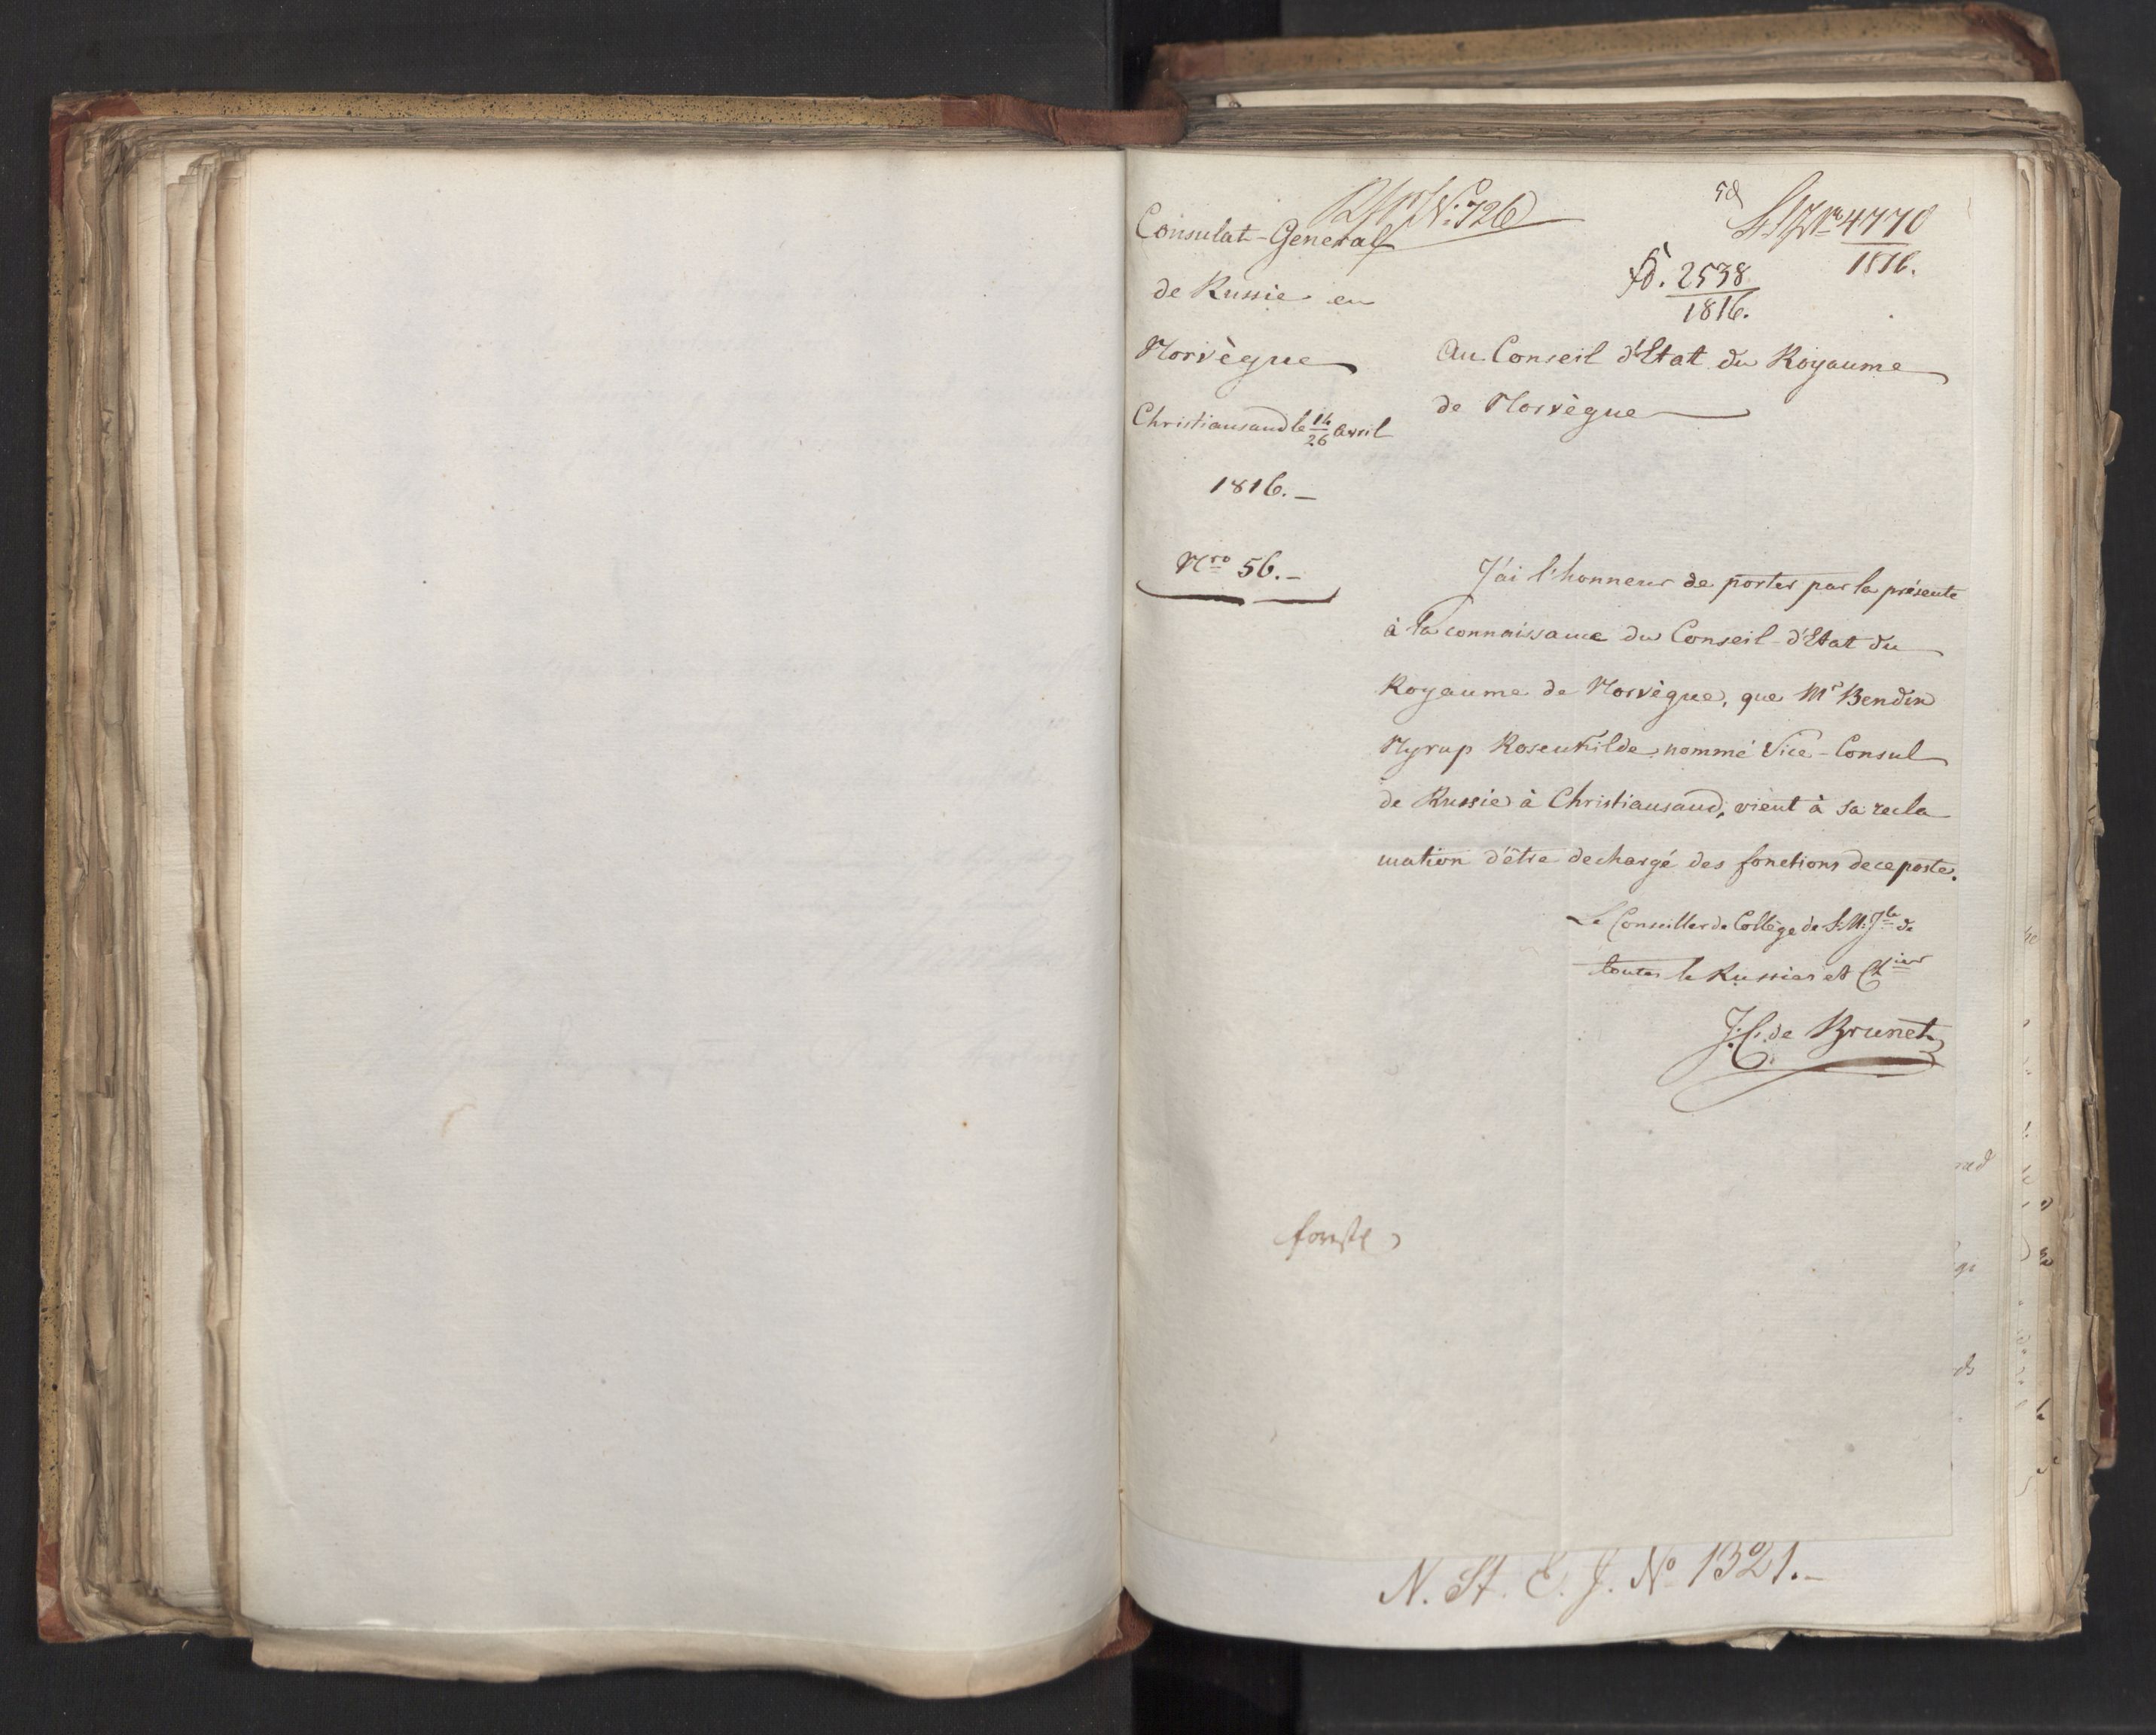 No. 726
4770
1816.
2538
1816.
Consulat-General
de Russie en
Norvègue
Christiansand le 14/26 Avril
1816.-
Nro 56.-
Au Conseil d'Etat du Royaume
de Norvègue
J'ai l'honneur de porter par la présente
à la connaissance du Conseil-d'Etat du
Royaume de Norvègue, que Mr Bendix
Nyrup Rosenkilde, nommé Vice-Consul
de Russie à Christiansand, vient à sa recla
mation d'être dechargé des fonctions de ce poste.
Le Conseiller de Collège de S: M: Jle de
toutes le Russies et Chier
J. C. de Brunet
N. St. E. J. No 1321.-